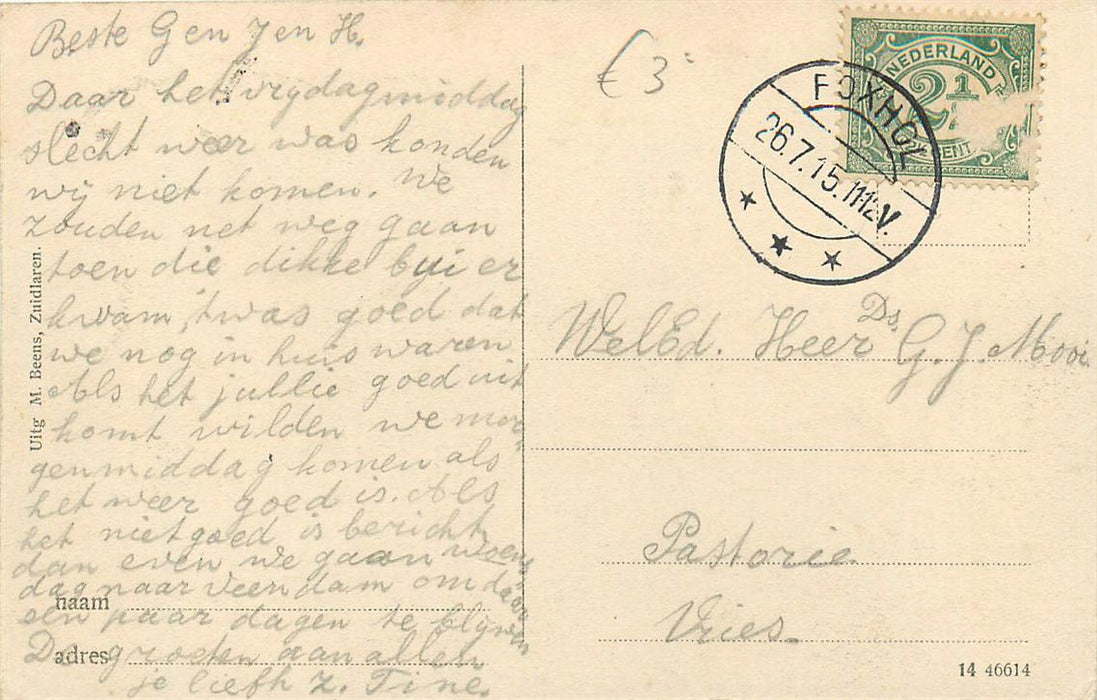 Beste G en J en H.
Daar het vrijdagmiddag
slecht weer was konden
wij niet komen. We
zouden net weg gaan
toen die dikke bui er
kwam, 't was goed dat
we nog in huis waren
Als het jullie goed uit
komt wilden we mor-
genmiddag komen als
het weer goed is. Als
het niet goed is bericht
dan even we gaan woens
dag naar Veendam om daar
een paar dagen te blijven
De groeten aan allen
je liefh z. Tine.
Uitg M. Beens, Zuidlaren.
naam
adres
€ 3
NEDERLAND
2½
CENT
FOXHOL
26.7.15.1112V.
WelEd. Heer Ds. G. J. Mooi
Pastorie
Vries
14 46614